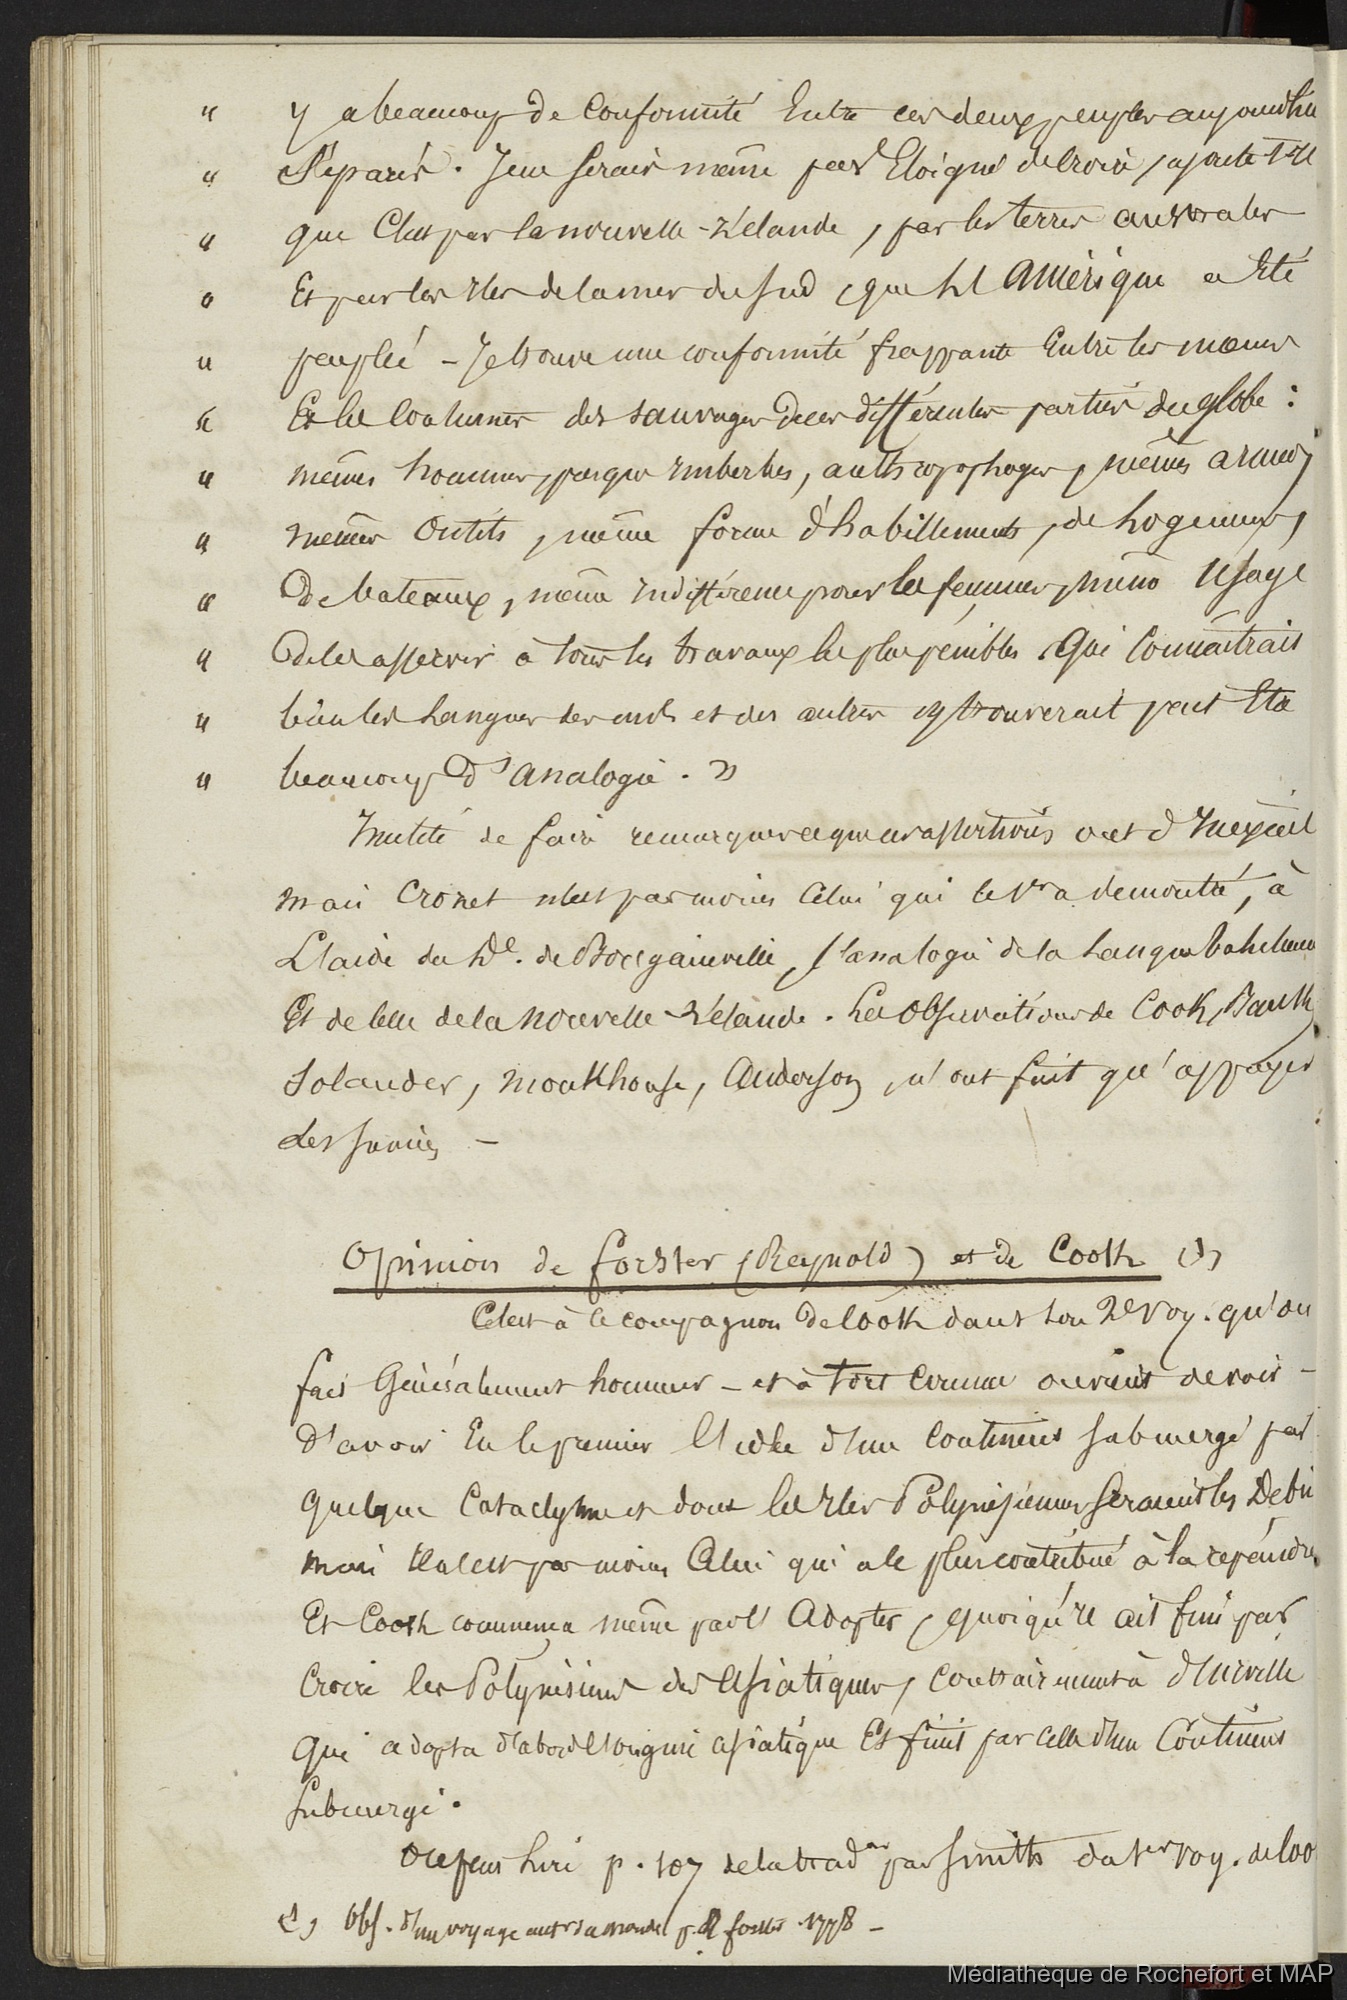 " y a beaucoup de Conformité Entre ces deux peuples aujourd'hui
" Séparés. Je ne serais même pas Eloigné de croire, ajoute t-il
" que C'est par la nouvelle-Zélande, par les terres australes
" Et par les Iles de la mer du Sud, que l'Amérique a Eté
" peuplée - Je trouve une conformité frappante Entre les mœurs
" Et les Coutumes des sauvages de ces différentes parties du globe :
" mêmes hommes, presque Imberbes, anthropophages, mêmes armes,
" mêmes Outils, même forme d'habillements, de logemens,
" de bateaux, même Indifférence pour les femmes, même Usage
" de les asservir à tous les travaux les plus pénibles. Qui Connaîtrait
" bien les Langues des uns et des autres y trouverait peut Etre
" beaucoup d'analogie. »
Inutile de faire remarquer ce que ces assertions ont d'Inexact
mais Crozet n'est pas moins Celui qui le 1er a démontré, à
L'aide du Vre. de Bougainville, l'analogie de la Langue Tahitienne
Et de Celle de la Nouvelle-Zélande. Les Observations de Cook, Banks,
Solander, Monkhouse, Anderson, n'ont fait qu'appuyer
les siennes -
Opinion de Forster (Reynold) et de Cook (1)
C'est à ce compagnon de Cook dans son 2e Voy. qu'on
fait Généralement honneur - et à tort Comme on vient de voir -
D'avoir Eu le premier l'idée d'un Continent submergé par
quelque Cataclysme et dont les Iles Polynésiennes seraient les Débris
mais Il n'est pas moins Celui qui a le plus contribué à la répandre,
Et Cook commença même par l'Adopter, quoiqu'il ait fini par
Croire les Polynésiens des Asiatiques, Contrairement à d'Urville
qui adopta d'abord l'origine asiatique Et finit par celle d'un Continent
submergé.
On peut Lire p. 107 de la trad on par Smith du 1er Voy. de Coo
(1) Obs. d'un voyage autr du monde p. R forster 1778 -
Médiathèque de Rochefort et MAP